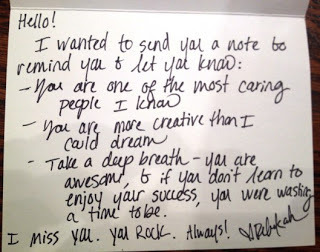 Hello!
I wanted to send you a note to
remind you & let you know:
- You are one of the most caring
people I know
- You are more creative than I
could dream
- Take a deep breath - you are
awesome, & if you don't learn to
enjoy your success, you were wasting
a time to be.
I miss you. You Rock. Always! ♡ Rebekah